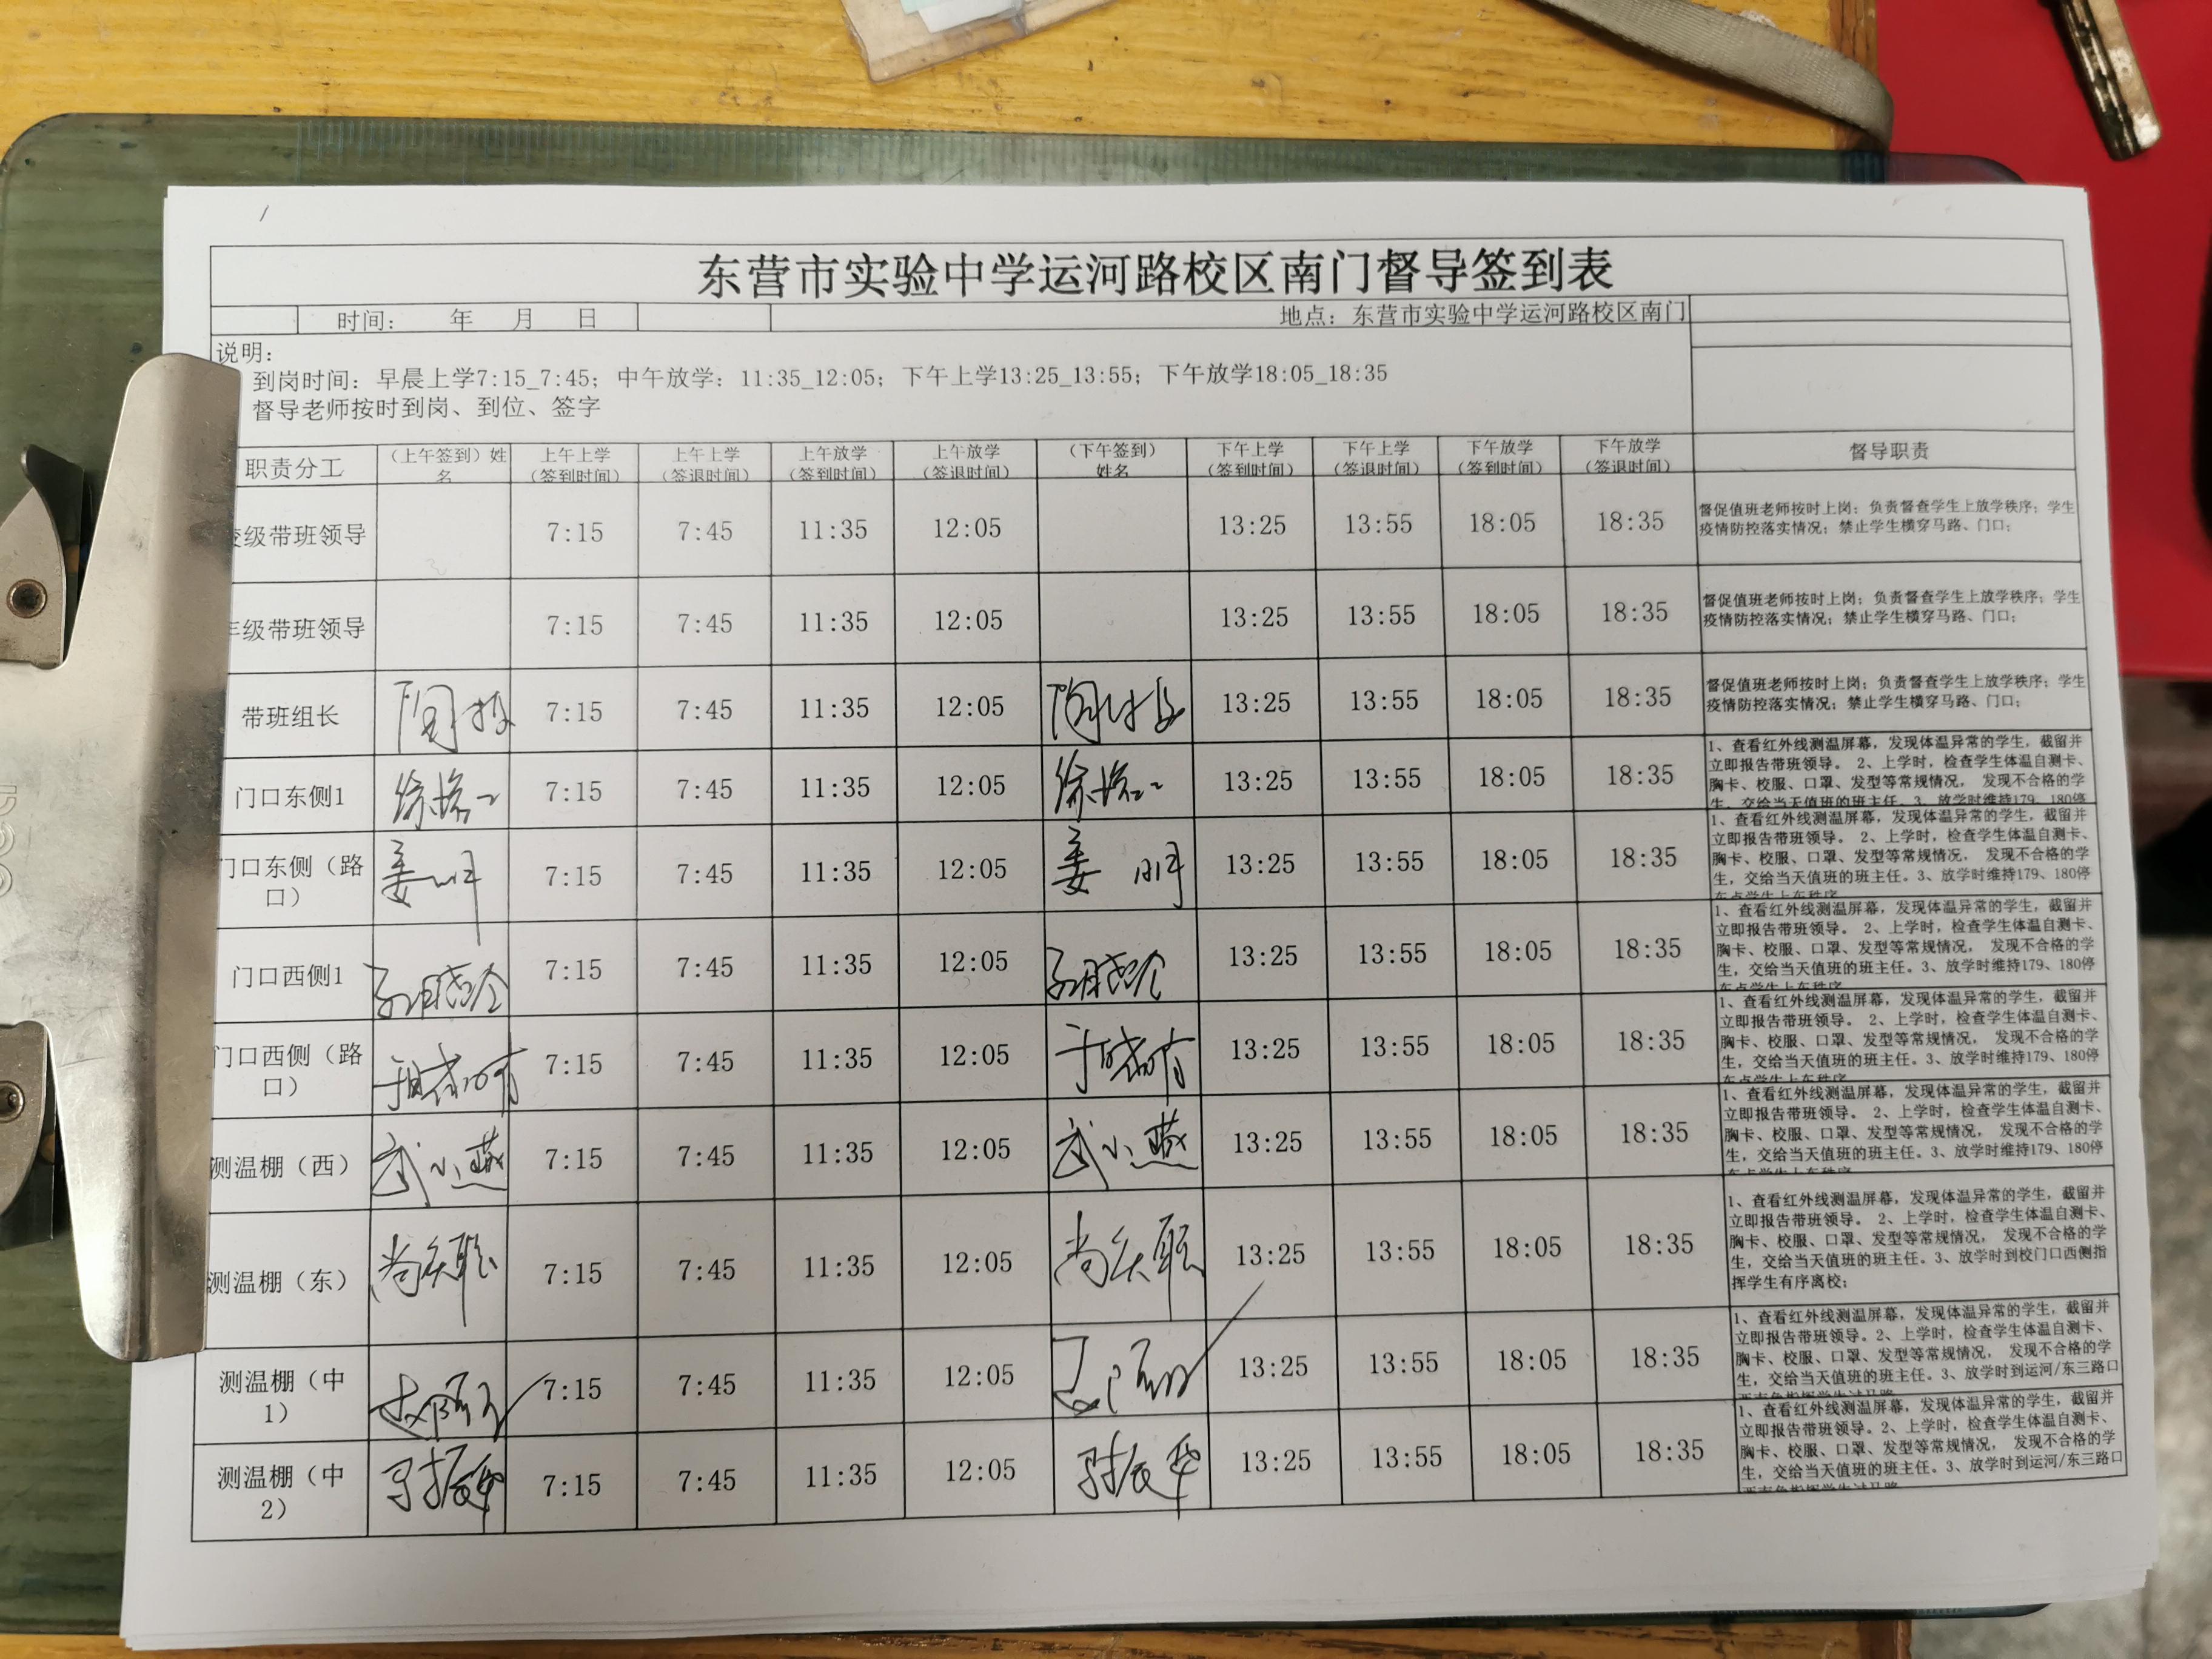 东营市实验中学运河路校区南门督导签到表
时间： 年 月 日 地点：东营市实验中学运河路校区南门
说明：
到岗时间：早晨上学7:15_7:45；中午放学：11:35_12:05；下午上学13:25_13:55；下午放学18:05_18:35
督导老师按时到岗、到位、签字
职责分工 （上午签到）姓名 上午上学（签到时间） 上午上学（签退时间） 上午放学（签到时间） 上午放学（签退时间） （下午签到）姓名 下午上学（签到时间） 下午上学（签退时间） 下午放学（签到时间） 下午放学（签退时间） 督导职责
级带班领导 7:15 7:45 11:35 12:05 13:25 13:55 18:05 18:35
督促值班老师按时上岗；负责督查学生上放学秩序；学生
疫情防控落实情况；禁止学生横穿马路、门口；
级带班领导 7:15 7:45 11:35 12:05 13:25 13:55 18:05 18:35
督促值班老师按时上岗；负责督查学生上放学秩序；学生
疫情防控落实情况；禁止学生横穿马路、门口；
带班组长 7:15 7:45 11:35 12:05 13:25 13:55 18:05 18:35
督促值班老师按时上岗；负责督查学生上放学秩序；学生
疫情防控落实情况；禁止学生横穿马路、门口；
门口东侧1 7:15 7:45 11:35 12:05 13:25 13:55 18:05 18:35
1、查看红外线测温屏幕，发现体温异常的学生，截留并
立即报告带班领导。 2、上学时，检查学生体温自测卡、
胸卡、校服、口罩、发型等常规情况， 发现不合格的学
生，交给当天值班的班主任。3、放学时维持179、180停
门口东侧（路口） 姜明 7:15 7:45 11:35 12:05 姜明 13:25 13:55 18:05 18:35
1、查看红外线测温屏幕，发现体温异常的学生，截留并
立即报告带班领导。 2、上学时，检查学生体温自测卡、
胸卡、校服、口罩、发型等常规情况， 发现不合格的学
生，交给当天值班的班主任。3、放学时维持179、180停
车点学生上车秩序
门口西侧1 7:15 7:45 11:35 12:05 13:25 13:55 18:05 18:35
1、查看红外线测温屏幕，发现体温异常的学生，截留并
立即报告带班领导。 2、上学时，检查学生体温自测卡、
胸卡、校服、口罩、发型等常规情况， 发现不合格的学
生，交给当天值班的班主任。3、放学时维持179、180停
车点学生上车秩序
门口西侧（路口） 于晓晴 7:15 7:45 11:35 12:05 于晓晴 13:25 13:55 18:05 18:35
1、查看红外线测温屏幕，发现体温异常的学生，截留并
立即报告带班领导。 2、上学时，检查学生体温自测卡、
胸卡、校服、口罩、发型等常规情况， 发现不合格的学
生，交给当天值班的班主任。3、放学时维持179、180停
车点学生上车秩序
测温棚（西） 武小燕 7:15 7:45 11:35 12:05 武小燕 13:25 13:55 18:05 18:35
1、查看红外线测温屏幕，发现体温异常的学生，截留并
立即报告带班领导。 2、上学时，检查学生体温自测卡、
胸卡、校服、口罩、发型等常规情况， 发现不合格的学
生，交给当天值班的班主任。3、放学时维持179、180停
车点学生上车秩序
测温棚（东） 7:15 7:45 11:35 12:05 13:25 13:55 18:05 18:35
1、查看红外线测温屏幕，发现体温异常的学生，截留并
立即报告带班领导。 2、上学时，检查学生体温自测卡、
胸卡、校服、口罩、发型等常规情况， 发现不合格的学
生，交给当天值班的班主任。3、放学时到校门口西侧指
挥学生有序离校；
测温棚（中1） 7:15 7:45 11:35 12:05 13:25 13:55 18:05 18:35
1、查看红外线测温屏幕，发现体温异常的学生，截留并
立即报告带班领导。2、上学时，检查学生体温自测卡、
胸卡、校服、口罩、发型等常规情况， 发现不合格的学
生，交给当天值班的班主任。3、放学时到运河/东三路口
测温棚（中2） 马振华 7:15 7:45 11:35 12:05 马振华 13:25 13:55 18:05 18:35
1、查看红外线测温屏幕，发现体温异常的学生，截留并
立即报告带班领导。2、上学时，检查学生体温自测卡、
胸卡、校服、口罩、发型等常规情况， 发现不合格的学
生，交给当天值班的班主任。3、放学时到运河/东三路口